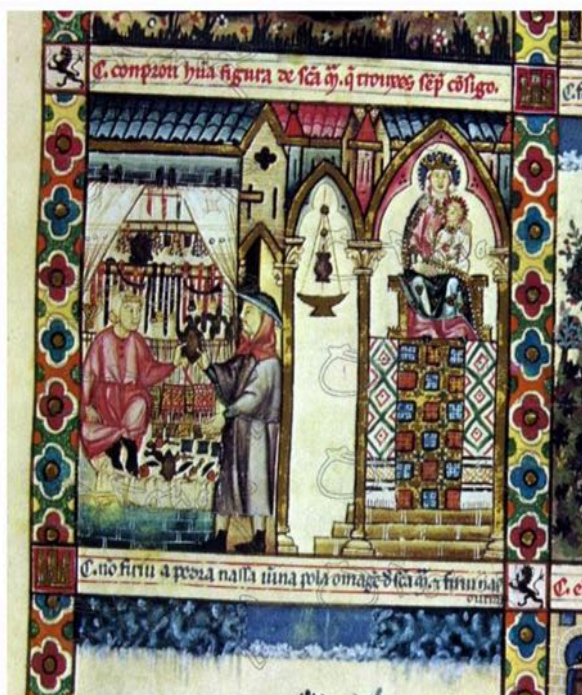 C. conprou hũa figura de sc̃a m̃. q̃ trouxes sẽp̃ cõsigo.
C. f
C. nõ firiu a pedra na ssa uinna pola omagẽ d̃ sc̃a m̃. ⁊ firiu nas
outras
C. e